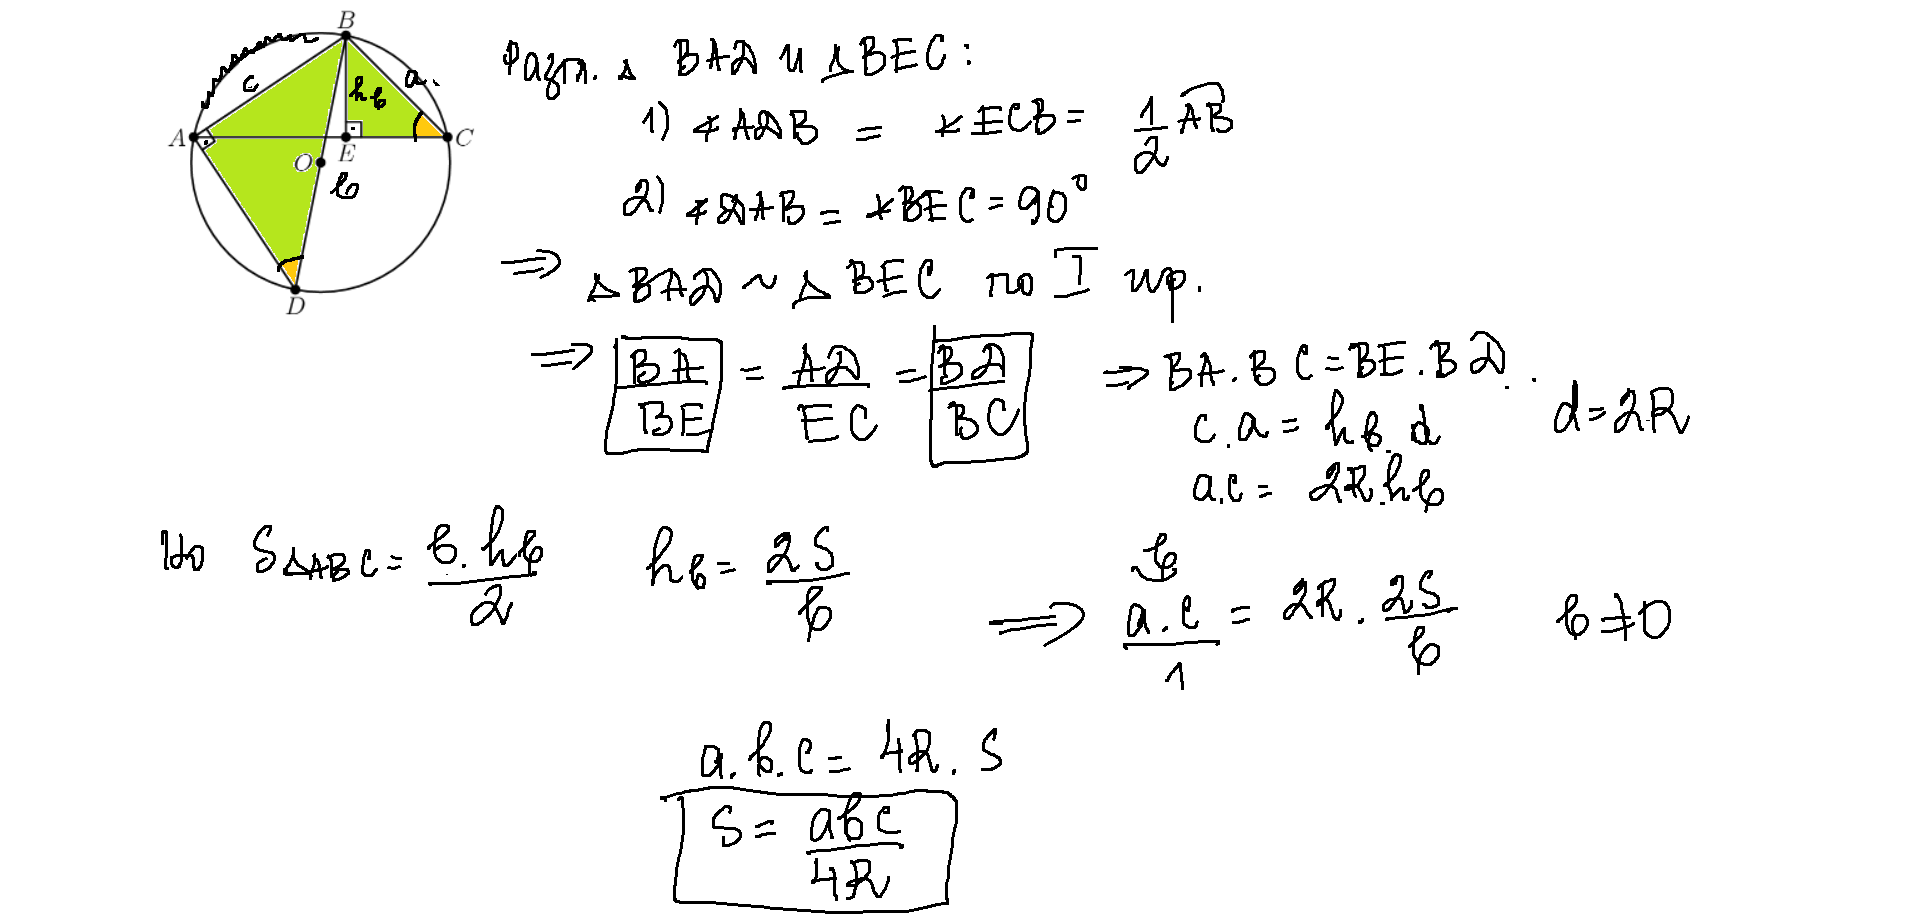 B
c
a.
hв
A
E
C
O
в
D
Разгл. △ BAD и △BEC:
1) ∢ADB = ∢ECB = 1/2 AB
2) ∢DAB = ∢BEC = 90°
⇒ △BAD ~ △BEC по I пр.
⇒ BA/BE = AD/EC = BD/BC ⇒ BA.BC = BE.BD
c.a = hв.d d=2R
a.c = 2R.hв
Но S△ABC = в.hв/2 hв = 2S/в
в
⇒ a.c/1 = 2R . 2S/в в≠0
a.в.c = 4R.S
S = aвc/4R